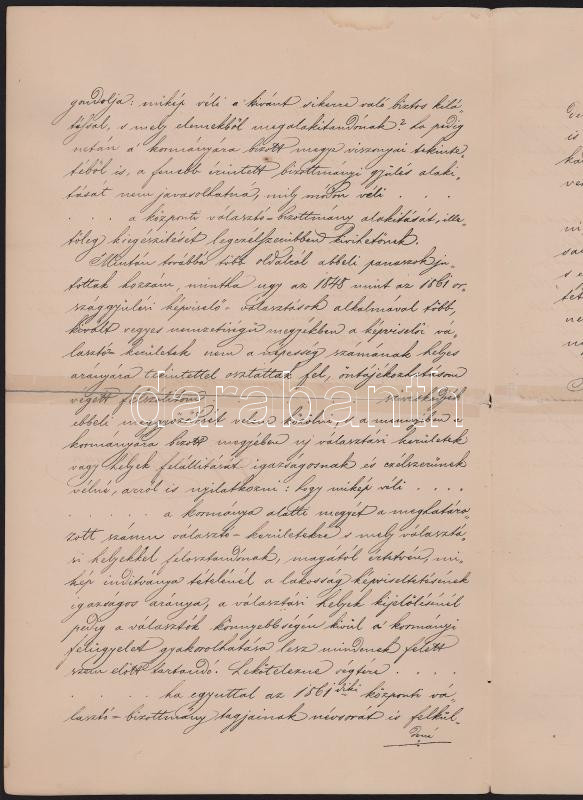 gondolja: mikép véli a kivánt sikerre való biztos kilá-
tással, s mely elemekből megalakitandónak? ha pedig
netán a kormányára bizott megye viszonyai tekinte-
téből is, a fenebb érintett bizottmányi gyülés alaki-
tását nem javasolhatná, mily módon véli . . .
. . . a központi választó-bizottmány alakitását, ille-
tőleg kiegészitését legczélszerübben kivihetőnek.
Miután továbbá több oldalról abbeli panaszok ju-
tottak hozzám, mintha ugy az 1848 mint az 1861 or-
szággyülési képviselő-választások alkalmával több,
kivált vegyes nemzetiségü megyékben a képviselői vá-
lasztó kerületek nem a népesség számának helyes
arányára tekintettel osztattak fel, öntájékozhatásom
végett felszólitom szíveskedjék
ebbeli megjegyzéseit velem közölni, s a mennyiben
kormányára bizott megyében uj választási kerületek
vagy helyek felállitását igazságosnak és czélszerünek
vélné, arról is nyilatkozni: hogy mikép véli . . . .
. . . . . a kormánya alatti megyét a meghatáro-
zott számu választó-kerületekre s mely választá-
si helyekkel, felosztandónak, magától értetvén, mi-
kép inditványa tételénél a lakosság képviseltetésének
igazságos aránya, a választási helyek kijelölésénél
pedig a választók könnyebbségén kivül a kormányi
felügyelet gyakorolhatása lesz mindenek felett
szem előtt tartandó. Lekötelezne végtére . . . .
. . . . . ha egyuttal az 1861 diki központi vá-
lasztó-bizottmány tagjainak névsorát is felkül-
dené
darabanth